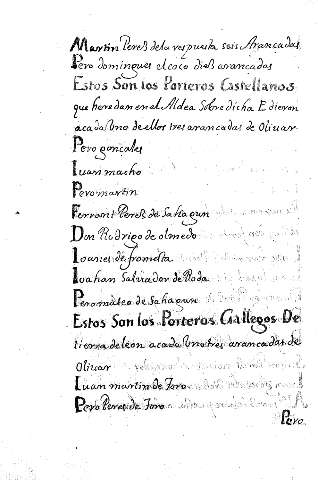 Martin Perez dela respuesta seis Arancadas
Pero domingues el coço diez arançadas
Estos Son los Porteros Castellanos
que heredan en el Aldea Sobre dicha E dieron
acada Uno de ellos tres arancadas de Olivar
Pero gonçales
Iuan macho
Pero martin
Ferrant Perez de Sahagun
Don Rodrigo de olmedo
Ioanes de fromesta
Iuahan Salvador de Roda
Pero mateo de Sahagun
Estos Son los Porteros Gallegos De
tierra de leon acada Uno tres arancadas de
Olivar
Iuan martin de Toro
Pero Perez de Toro
Pero